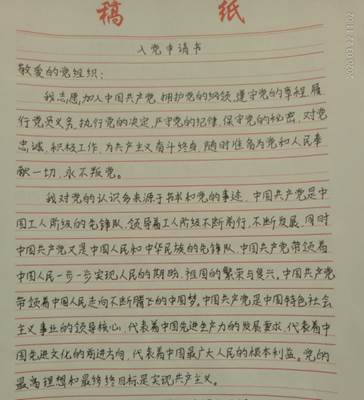 稿 纸
入党申请书
敬爱的党组织:
我志愿加入中国共产党,拥护党的纲领,遵守党的章程,履
行党员义务,执行党的决定,严守党的纪律,保守党的秘密,对党
忠诚,积极工作,为共产主义奋斗终身,随时准备为党和人民牺
献一切,永不叛党。
我对党的认识乡来源于书书和党的事迹,中国共产党是中
国工人阶级的先锋队,领导着工人阶级不断前行,不断发展,同时
中国共产党又是中国人民和中华民族的先锋队,中国共产党带领着
中国人民一步一步实现人民的期盼,祖国的繁荣与复兴,中国共产党
带领着中国人民走向不断腾飞的中国梦,中国共产党是中国特色社会
主义事业的领导核心,代表着中国先进生产力的发展要求,代表着中
国先进文化的前进方向,代表着中国最广大人民的根本利益。党的
最高理想和最终终目标是实现共产主义。